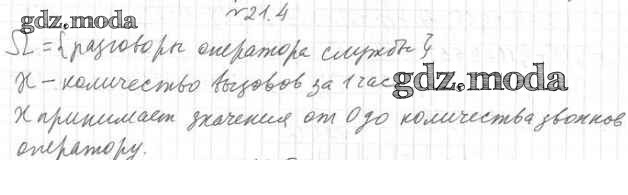 №21.4
gdz.moda
Ω = {разговоры оператора службы}
X – количество вызовов за 1 час
gdz.moda
X принимает значения от 0 до количества звонков
оператору.